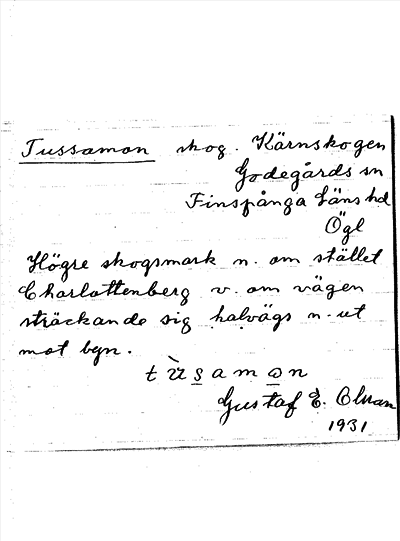 Tussamon skog. Kärnskogen
Godegårds sn
Finspånga läns hd
Ögl
Högre skogsmark n. om stället
Charlottenberg v. om vägen
sträckande sig halvägs n. ut
mot byn.
t ù s a m ə n
Gustaf E. Olman
1931